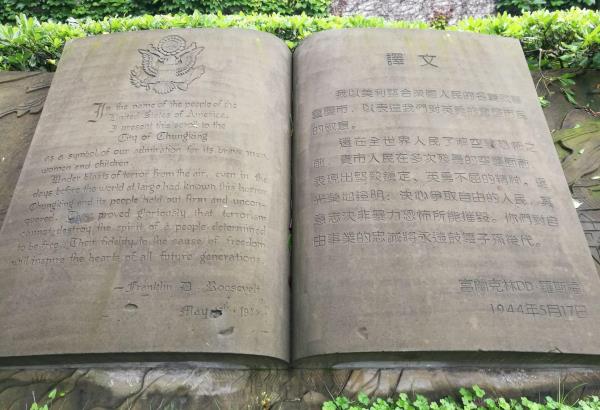 In the name of the people of the
United States of America,
I present this scroll to the
City of Chungking
as a symbol of our admiration for its brave men,
women and children.
Under blasts of terror from the air, even in the
days before the world at large had known this horror,
Chungking and its people held out firm and uncon-
quered. They proved gloriously that terrorism
cannot destroy the spirit of a people determined
to be free. Their fidelity to the cause of freedom
will inspire the hearts of all future generations.
Franklin D. Roosevelt
May
譯文
我以美利堅合衆國人民的名義
重慶市,以表達我們對英勇的重慶市民
的敬意。
遠在全世界人民了解空襲恐怖之
前,重慶市人民在多次殘暴的空襲面前
表現出堅毅鎮定、英勇不屈的精神。
光榮地證明:決心爭取自由的人民,其
意志決非暴力恐怖所能摧毀。你們對自
由事業的忠誠將永遠鼓舞子孫後代。
富蘭克林·D·羅斯福
1944年5月17日